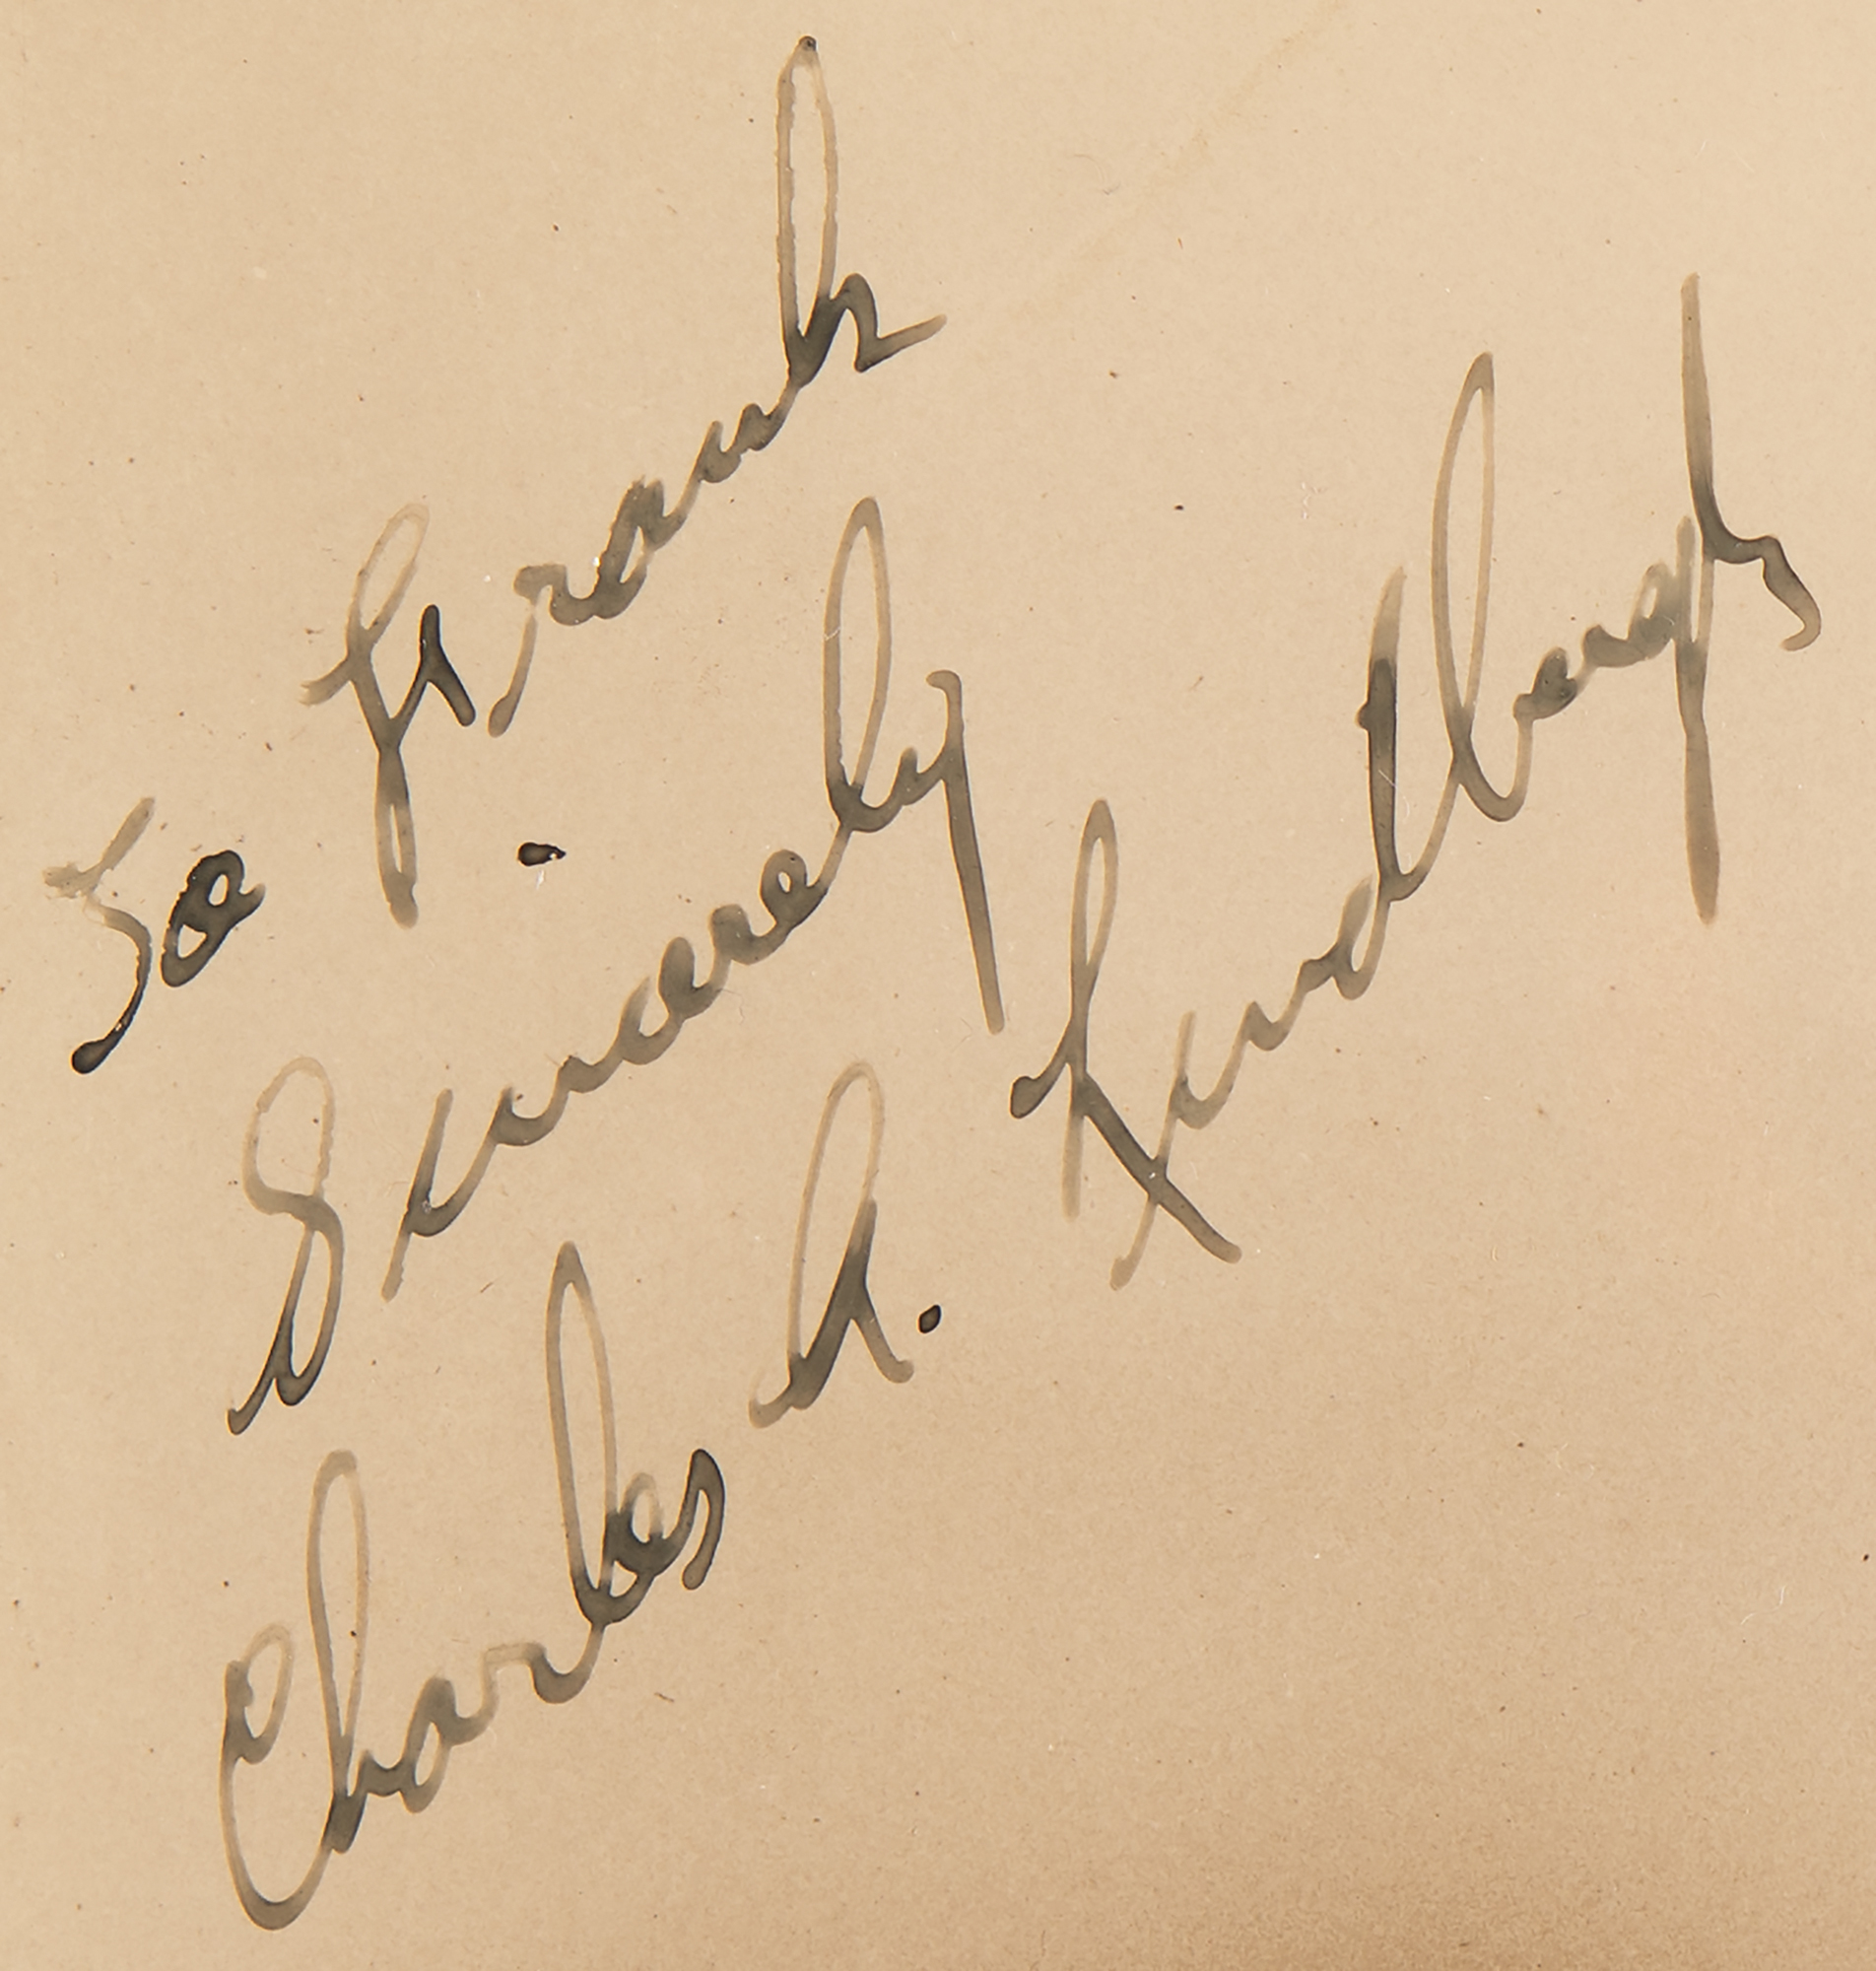 To Frank
Sincerely
Charles A. Lindbergh